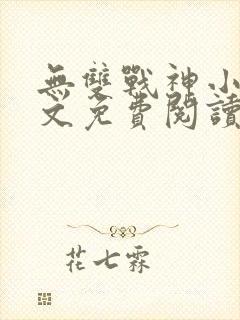 無雙戰神小
文免費閱讀
花七霖